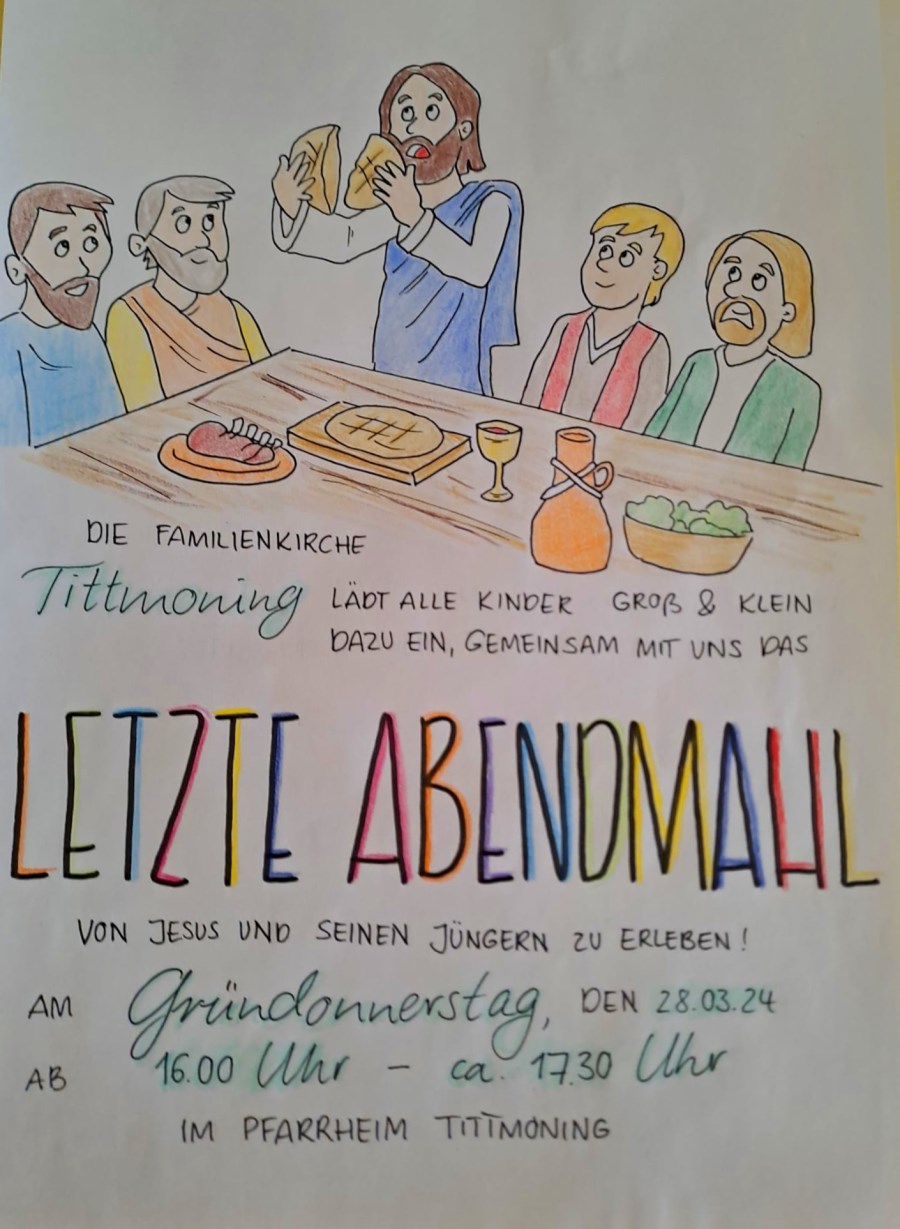 DIE FAMILIENKIRCHE
Tittmoning LÄDT ALLE KINDER GROß & KLEIN
DAZU EIN, GEMEINSAM MIT UNS DAS
LETZTE ABENDMAHL
VON JESUS UND SEINEN JÜNGERN ZU ERLEBEN!
AM Gründonnerstag, DEN 28.03.24
AB 16.00 Uhr - ca. 17.30 Uhr
IM PFARRHEIM TITTMONING